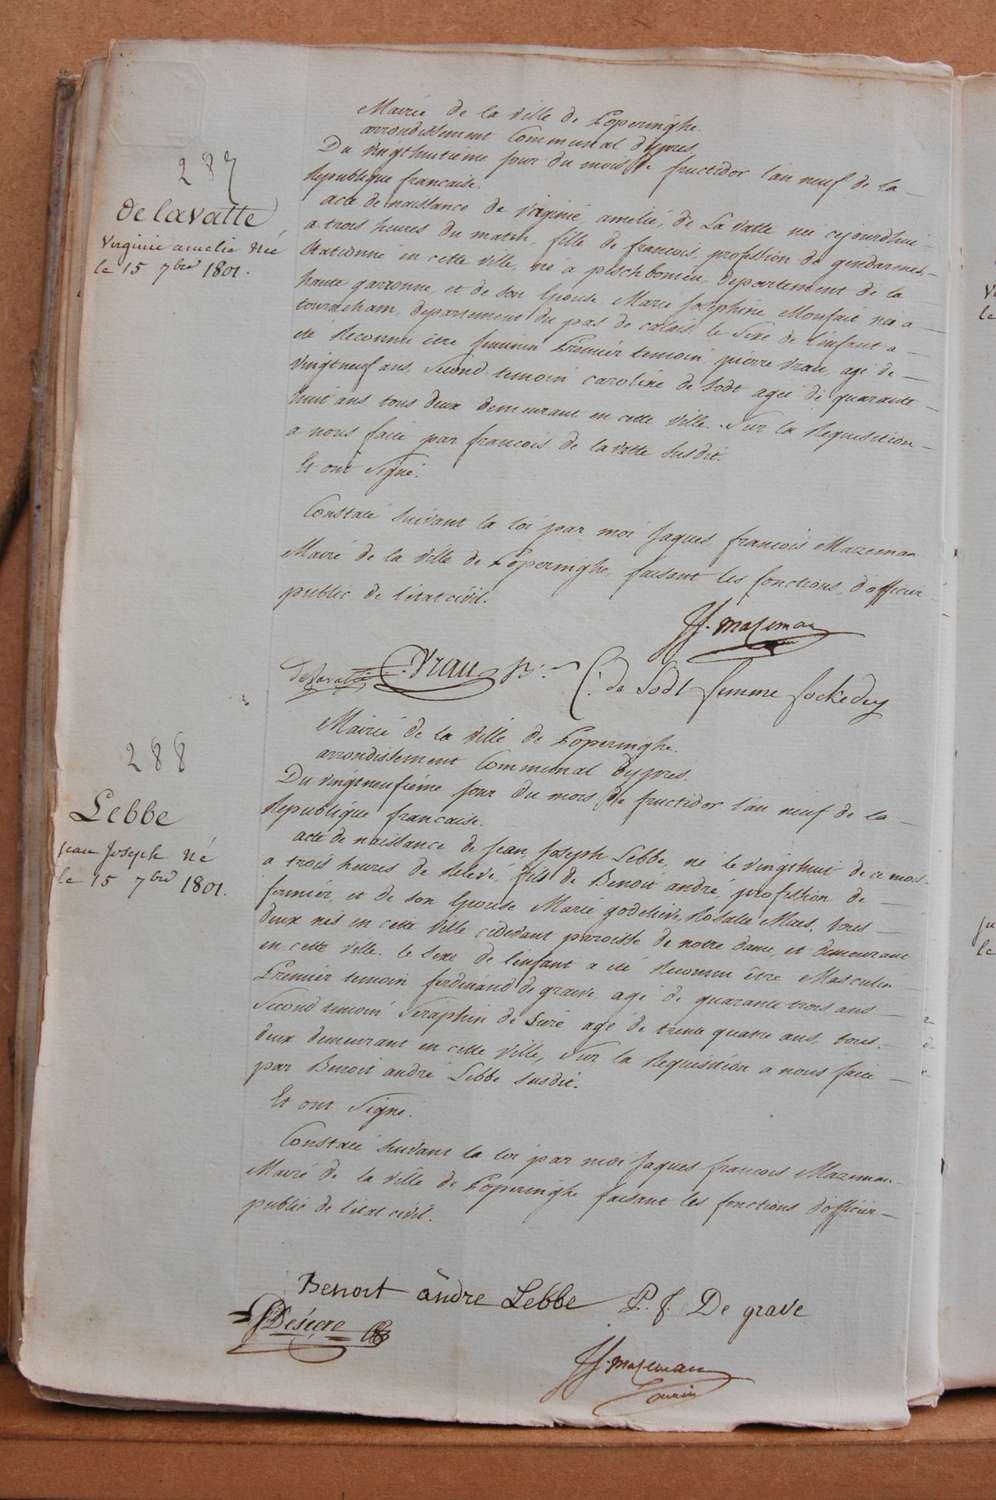 Mairie de la ville de Poperinghe.
arrondissement Communal d'ypres.
287
Du vingthuitieme jour du mois de fructidor l'an neuf de la
Republique francaise.
delavatte
Virginie amelie Né
le 15 7bre 1801.
acte de naissance de virginie amelie, de La vatte nee cejourdhui
a trois heures du matin, fille de francois, profession de gendarme
stationné en cette ville, né a departement de la
haute garonne, et de son Epouse Marie Josephine Monfait née a
tournehem, departement du pas de calais, le Sexe de l'enfant a
eté Reconnu être feminin Premier temoin pierre vrau, agé de
vingtneuf ans, Second temoin caroline de Sodt agee de quarante
huit ans tous deux demeurant en cette ville. Sur la Requisition
a nous faite par francois de la vatte susdit.
Et ont Signé.
Constaté suivant la loi par moi Jaques francois Mazeman
Maire de la ville de Poperinghe, faisant les fonctions d'officier
public de l'état civil.
JF. Mazeman
delavatte Vrau C: de Sodt femme
288
Mairie de la ville de Poperinghe.
arrondissement Communal d'ypres.
Du vingtneufieme jour du mois de fructidor l'an neuf de la
Republique francaise.
Lebbe
jean Joseph Né
le 15 7bre 1801.
acte de naissance de Jean Joseph Lebbe, né le vingthuit de ce mois
a trois heures de Relevé, fils de Benoit andré profession de
fermier, et de son Epouse Marie godelieve Rosalie Maes, tous
deux nés en cette ville cidevant paroisse de notre dame, et demeurant
en cette ville. le Sexe de l'enfant a eté Reconnu être Masculin
Premier temoin ferdinand de grave agé de quarante trois ans
Second temoin Seraphin de Sire agé de trente quatre ans, tous
deux demeurant en cette ville, Sur la Requisition a nous faite
par Benoit andré Lebbe susdit.
Et ont Signé.
Constaté suivant la loi par moi Jaques francois Mazeman
Maire de la ville de Poperinghe faisant les fonctions d'officier
public de l'état civil.
Benoit andre Lebbe P. f. De grave
JF. Mazeman